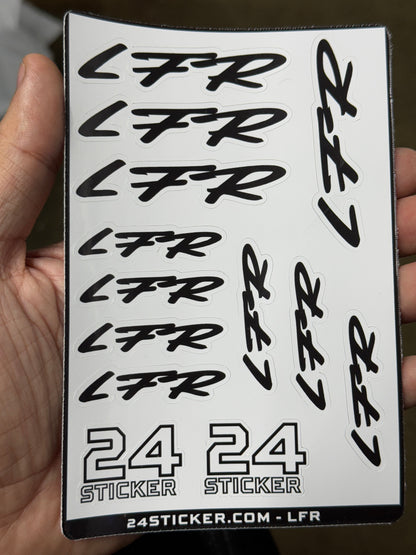 LFR
LFR
LFR
LFR
LFR
LFR
LFR
LFR
LFR
LFR
LFR
24
STICKER
24
STICKER
24STICKER.COM - LFR